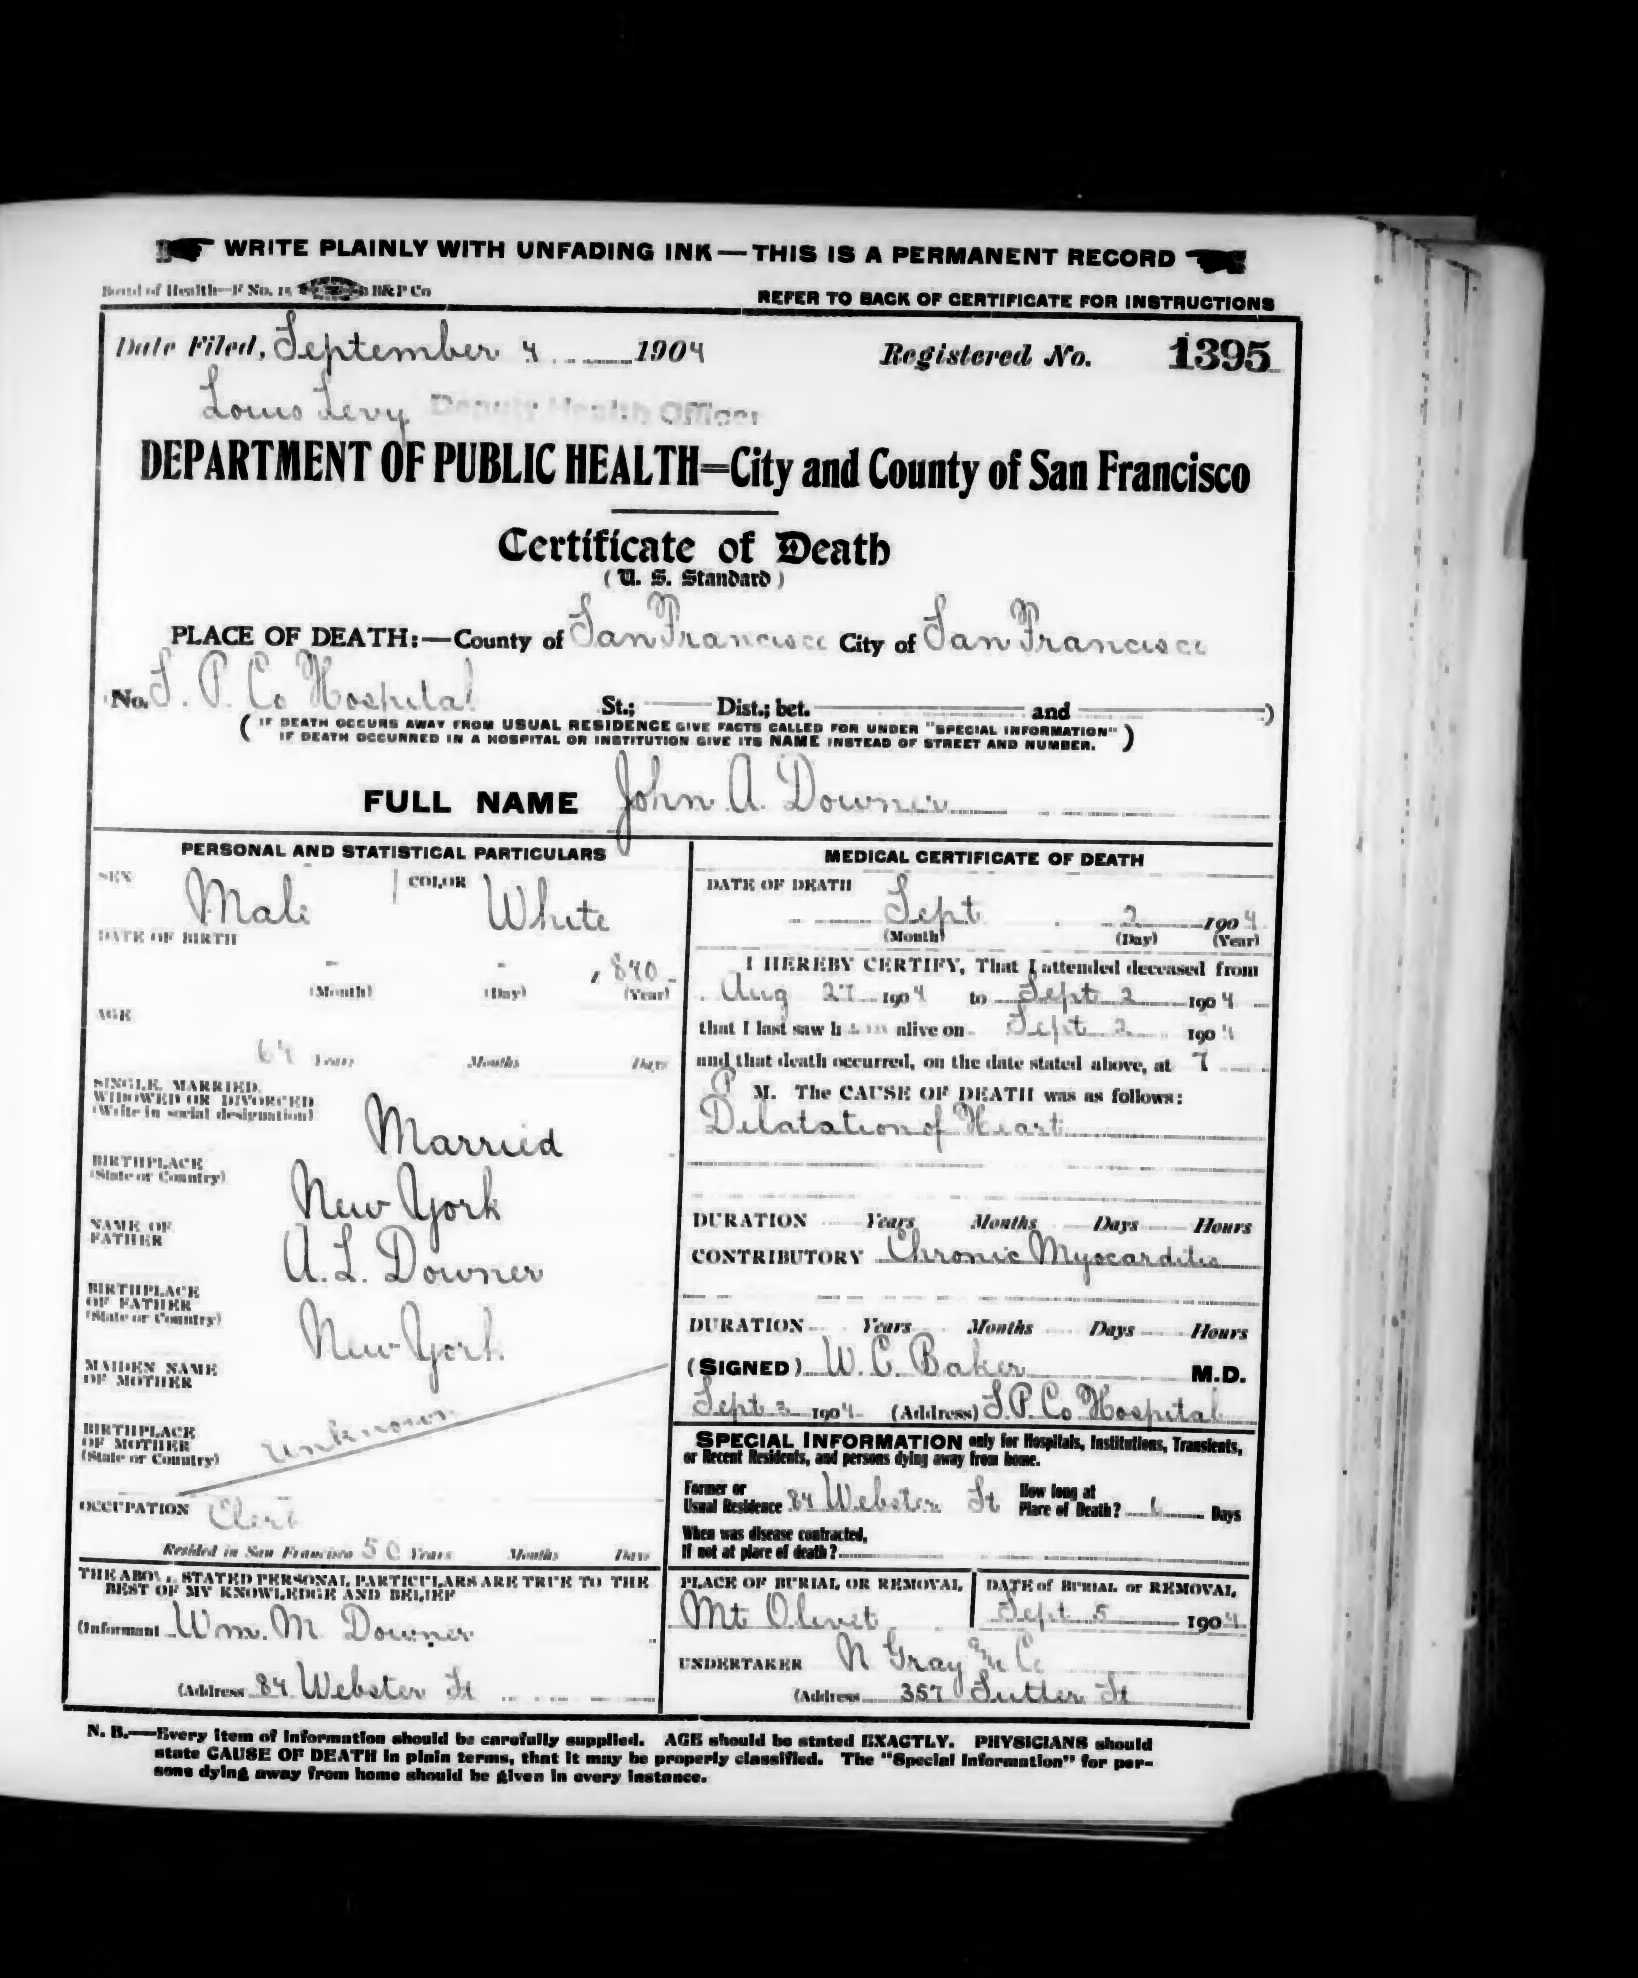 WRITE PLAINLY WITH UNFADING INK—THIS IS A PERMANENT RECORD
Board of Health—F No. 15 H&P Co
REFER TO BACK OF CERTIFICATE FOR INSTRUCTIONS
Date Filed, September 4 1904 Registered No. 1395
Louis Levy Deputy Health Officer
DEPARTMENT OF PUBLIC HEALTH=City and County of San Francisco
Certificate of Death
(U. S. Standard)
PLACE OF DEATH:—County of San Francisco City of San Francisco
No. S. P. Co Hospital St.; Dist.; bet. and )
( IF DEATH OCCURS AWAY FROM USUAL RESIDENCE GIVE FACTS CALLED FOR UNDER "SPECIAL INFORMATION"
IF DEATH OCCURRED IN A HOSPITAL OR INSTITUTION GIVE ITS NAME INSTEAD OF STREET AND NUMBER. )
FULL NAME John A. Downer
PERSONAL AND STATISTICAL PARTICULARS
SEX Male COLOR White
DATE OF BIRTH
- - 1840
(Month) (Day) (Year)
AGE
64 Years Months Days
SINGLE, MARRIED,
WIDOWED OR DIVORCED
(Write in social designation)
Married
BIRTHPLACE
(State or Country)
New York
NAME OF
FATHER
A. L. Downer
BIRTHPLACE
OF FATHER
(State or Country)
New York
MAIDEN NAME
OF MOTHER
unknown
BIRTHPLACE
OF MOTHER
(State or Country)
OCCUPATION Clerk
Resided in San Francisco 50 Years Months Days
THE ABOVE STATED PERSONAL PARTICULARS ARE TRUE TO THE
BEST OF MY KNOWLEDGE AND BELIEF
(Informant Wm. M Downer
(Address 84 Webster St
MEDICAL CERTIFICATE OF DEATH
DATE OF DEATH
Sept 2 1904
(Month) (Day) (Year)
I HEREBY CERTIFY, That I attended deceased from
Aug 27 1904 to Sept 2 1904
that I last saw him alive on Sept 2 1904
and that death occurred, on the date stated above, at 7
P M. The CAUSE OF DEATH was as follows:
Dilatation of Heart
DURATION Years Months Days Hours
CONTRIBUTORY Chronic Myocarditis
DURATION Years Months Days Hours
(SIGNED) W. C. Baker M.D.
Sept 3 1904 (Address) S. P. Co. Hospital
SPECIAL INFORMATION only for Hospitals, Institutions, Transients,
or Recent Residents, and persons dying away from home.
Former or
Usual Residence 84 Webster St
How long at
Place of Death? 6 Days
When was disease contracted,
If not at place of death?
PLACE OF BURIAL OR REMOVAL
Mt Olivet
DATE of BURIAL or REMOVAL
Sept 5 1904
UNDERTAKER N Gray & Co
(Address 357 Sutter St
N. B.—Every item of information should be carefully supplied. AGE should be stated EXACTLY. PHYSICIANS should
state CAUSE OF DEATH in plain terms, that it may be properly classified. The "Special Information" for per-
sons dying away from home should be given in every instance.